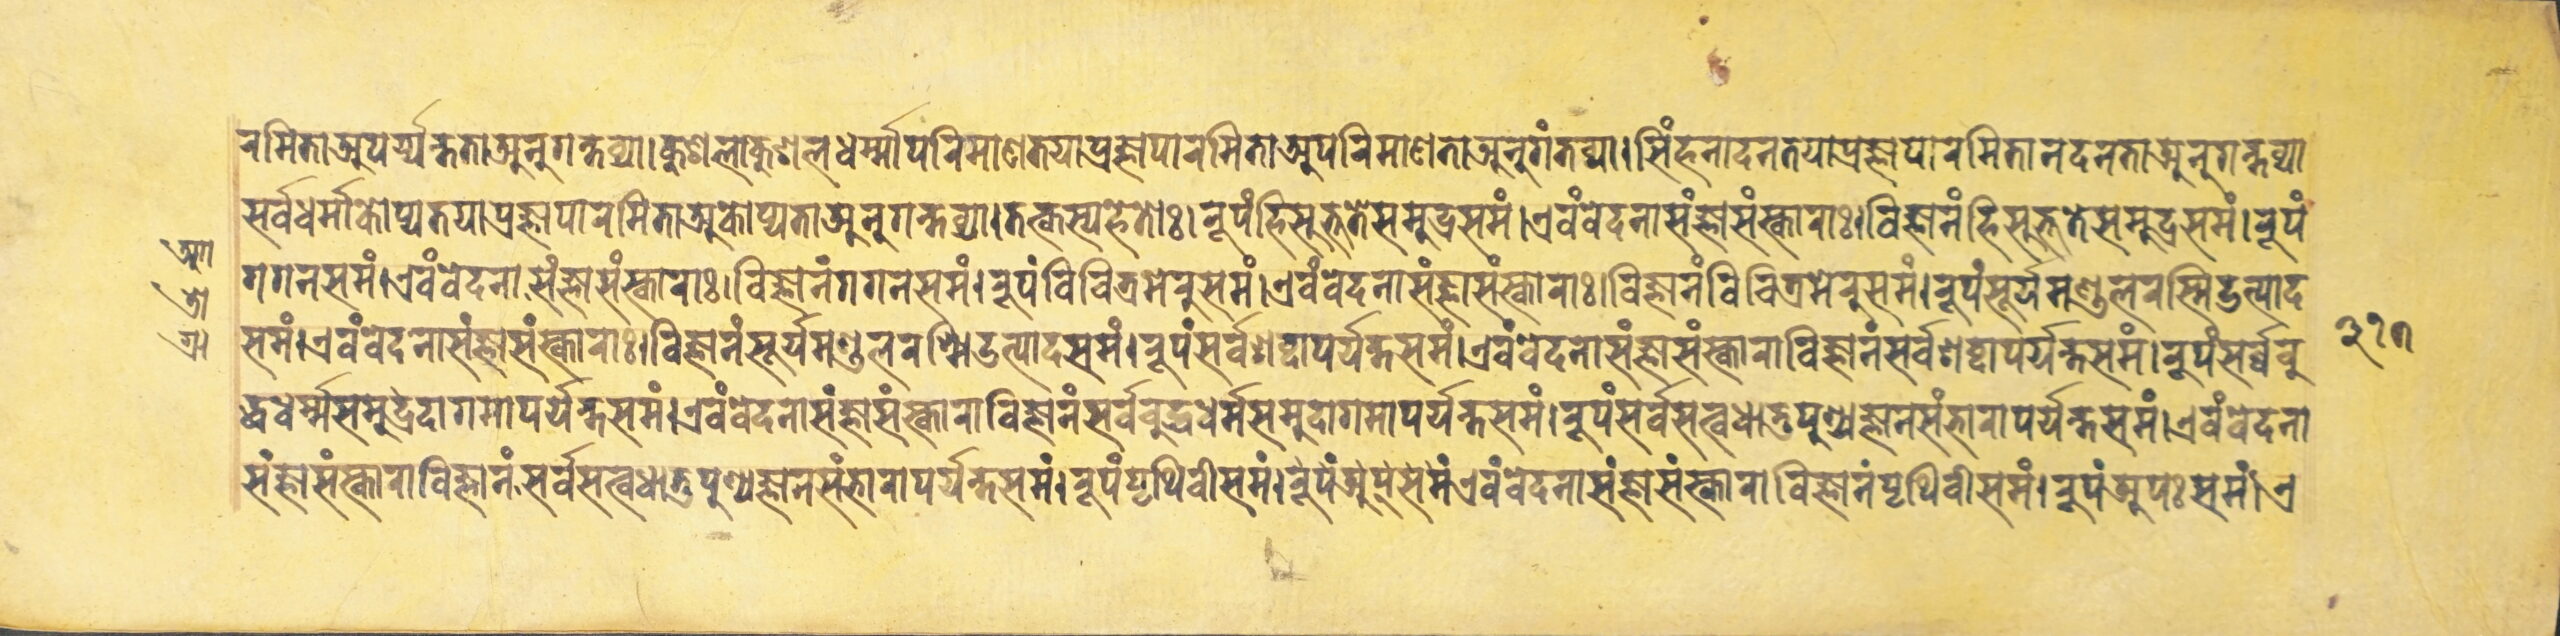 रमिताअपर्य्यन्तताअनुगन्तव्या।कुशलाकुशलधर्म्मापरिमाणतयाप्रज्ञापारमिताअपरिमाणताअनुगंतव्या।सिंहनादनतयाप्रज्ञापारमितानदनताअनुगन्तव्या
सर्वधर्माकोप्यतयाप्रज्ञापारमिताअकोप्यताअनुगन्तव्या।तत्कस्यहेतोः।रूपंहिसुभुतेसमुद्रसमं।एवंवेदनासंज्ञासंस्काराः।विज्ञानंहिसुभुतेसमुद्रसमं।रूपं
गगनसमं।एवंवेदनासंज्ञासंस्काराः।विज्ञानंगगनसमं।रूपंविचित्रमेरुसमं।एवंवेदनासंज्ञासंस्काराः।विज्ञानंविचित्रमेरुसमं।रूपंसूर्यमण्डलरस्मिउत्पाद
समं।एवंवेदनासंज्ञासंस्काराः।विज्ञानंसूर्यमण्डलरश्मिउत्पादसमं।रूपंसर्वशब्दापर्यन्तसमं।एवंवेदनासंज्ञासंस्काराविज्ञानंसर्वशब्दापर्यन्तसमं।रूपंसर्व्वबु
द्धधर्म्मसमुद्रदागमापर्यन्तसमं।एवंवेदनासंज्ञासंस्काराविज्ञानंसर्वबुद्धधर्मसमुदागमापर्यन्तसमं।रूपंसर्वसत्वधातुपुण्यज्ञानसंभारापर्यन्तसमं।एवंवेदना
संज्ञासंस्काराविज्ञानंसर्वसत्वधातुपुण्यज्ञानसंभारापर्यन्तसमं।रूपंपृथिवीसमं।रूपंअपसमंएवंवेदनासंज्ञासंस्काराविज्ञानंपृथिवीसमं।रूपंअपःसमं।ए